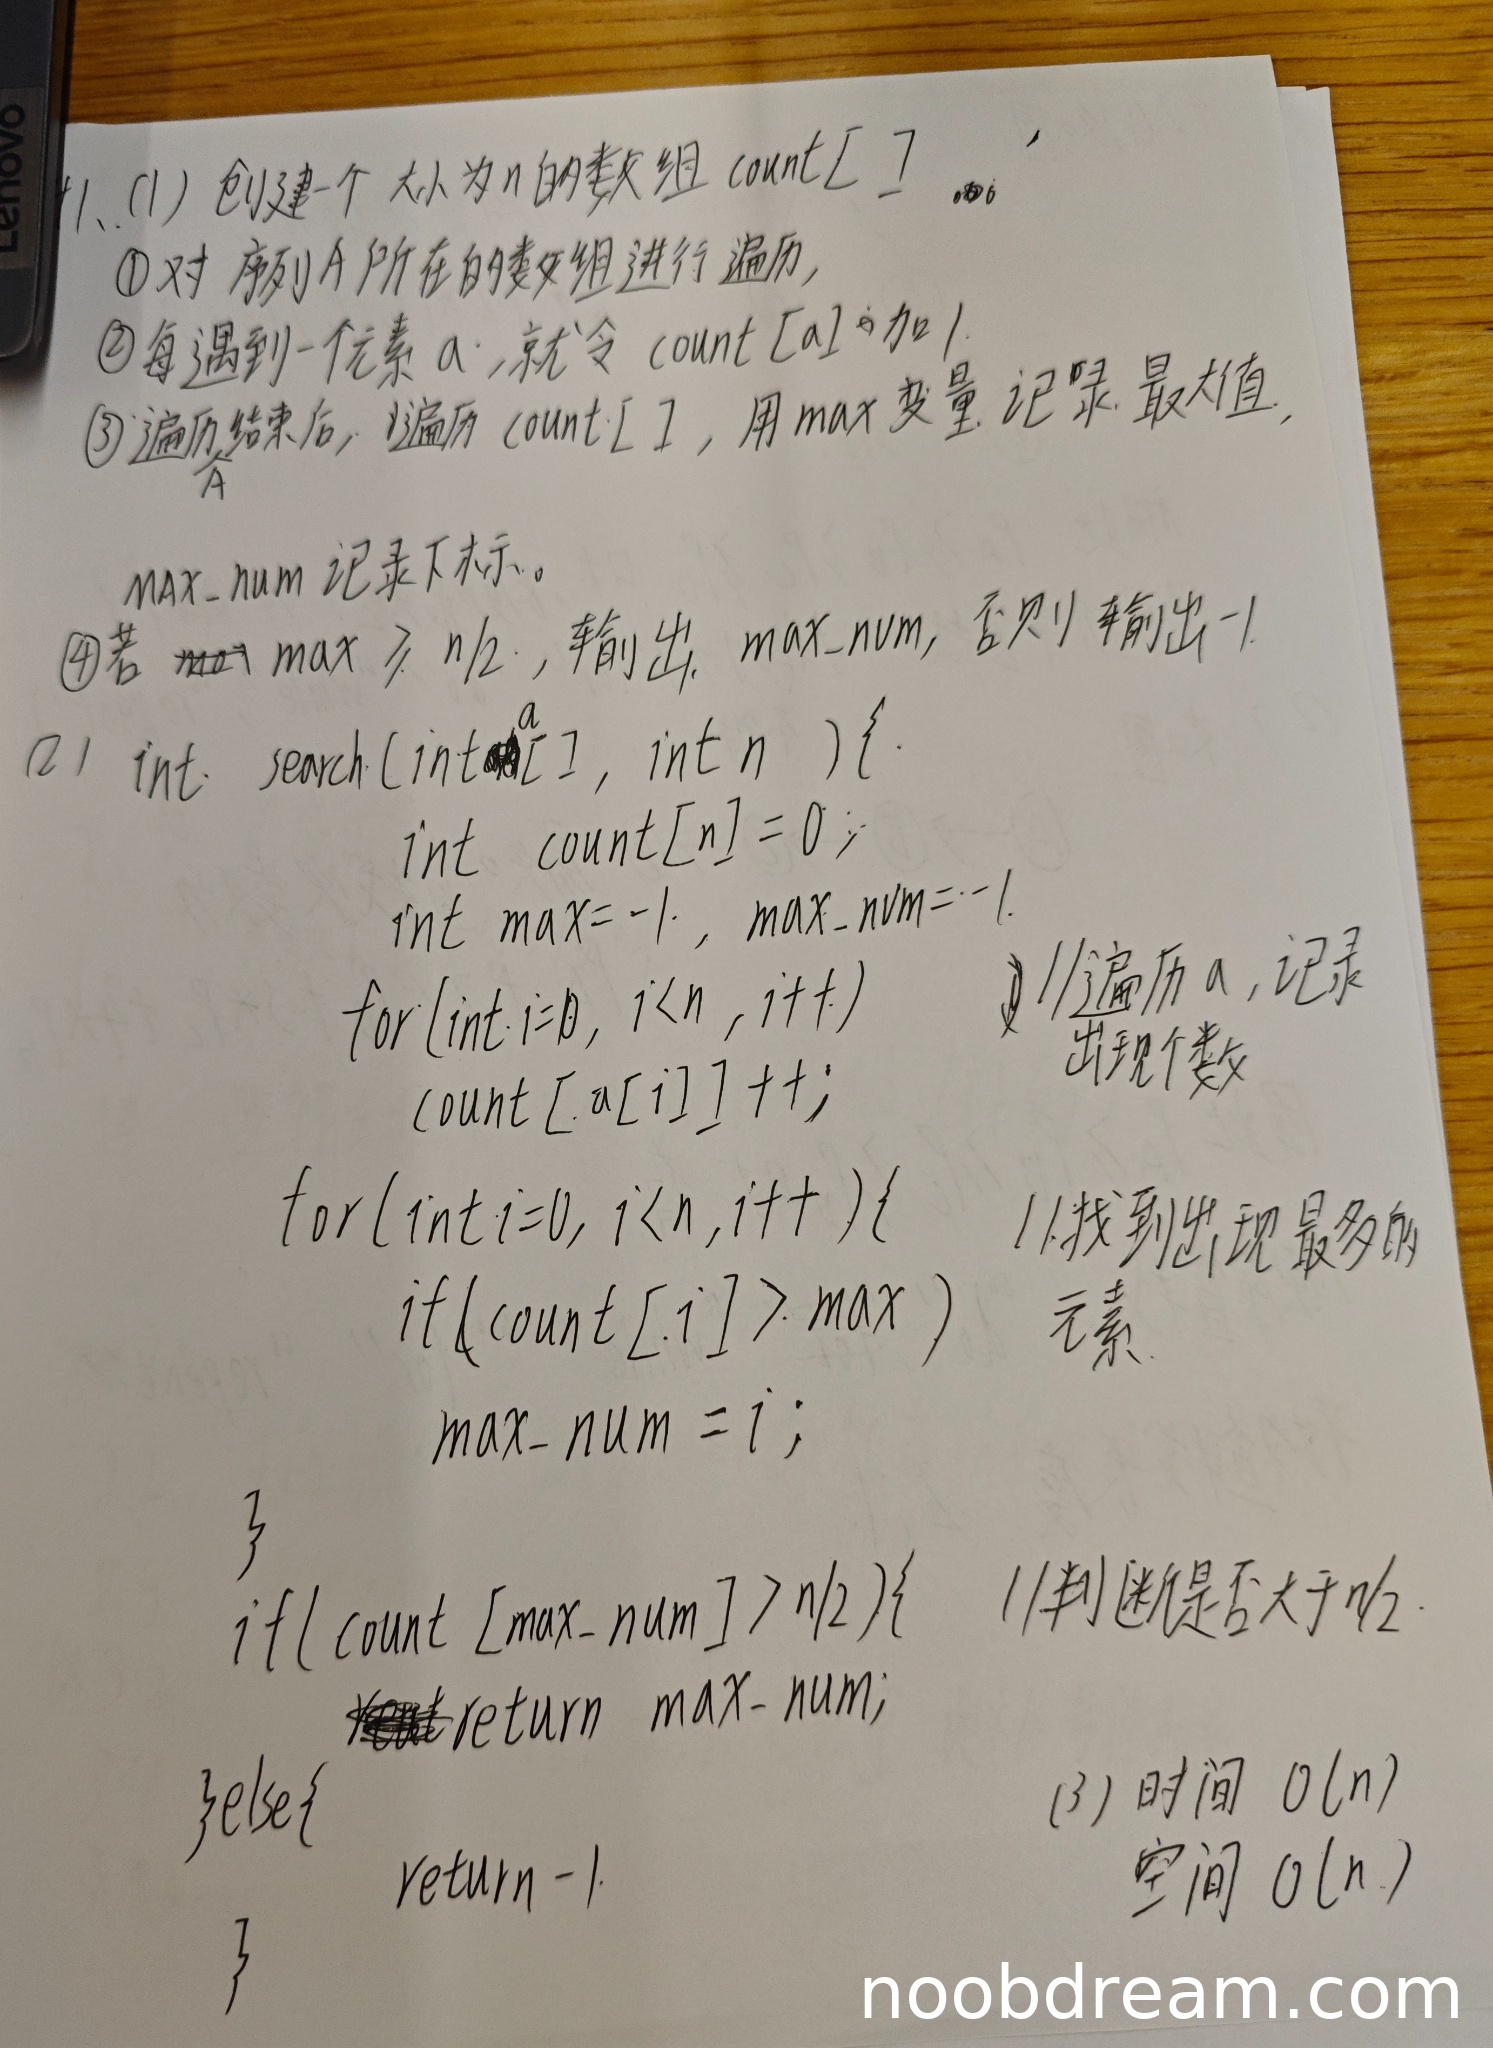 Lenovo
41、(1) 创建一个大小为n的数组 count[ ]
①对序列A所在的数组进行遍历,
②每遇到一个元素a,就令 count[a]加1.
③遍历A结束后,遍历 count[ ],用max变量记录最大值,
MAX_num 记录下标。
④若 max ≥ n/2,输出 max_num,否则输出-1
(2) int search(int a[ ], int n ){
int count[n]=0;
int max=-1, max_num=-1.
for(int i=0, i<n, i++) //遍历a,记录
出现个数
count[a[i]]++;
for(int i=0, i<n, i++){ //找到出现最多的
if(count[i]>max) 元素.
max_num = i;
}
if( count [max_num]>n/2){ //判断是否大于n/2.
return max_num;
}else{
return -1.
}
(3) 时间 O(n)
空间 O(n)
noobdream.com